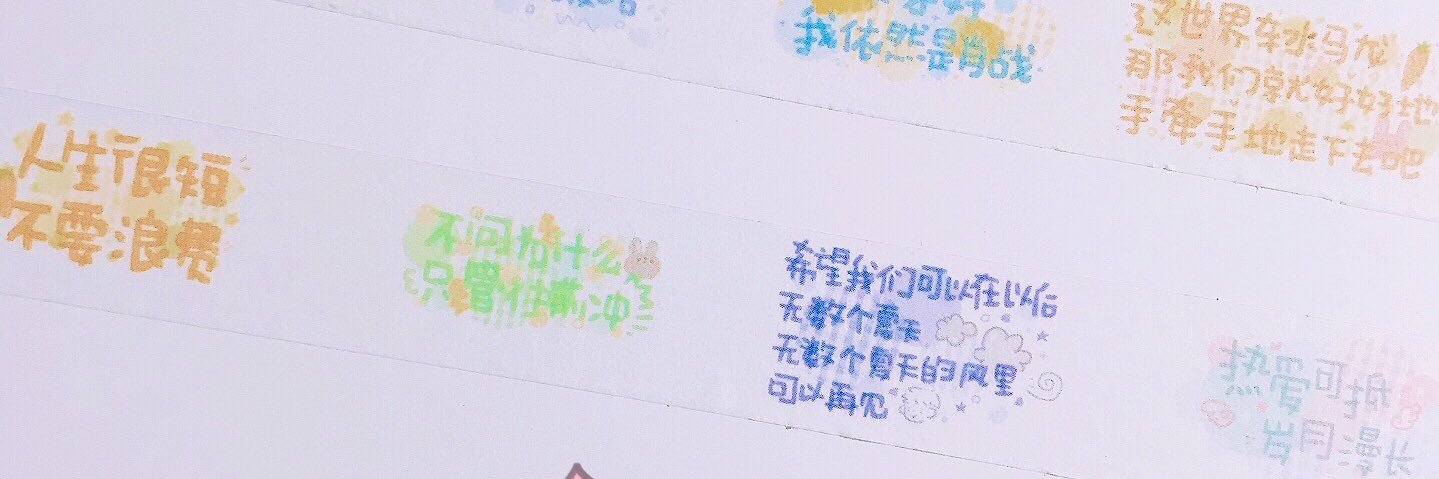 我依然是肖战
这世界车水马龙
那我们就好好地
手牵手地走下去吧
人生很短
不要浪费
不问为什么
只管往前冲
希望我们可以在以后
无数个夏天
无数个夏天的风里
可以再见
热爱可抵
岁月漫长